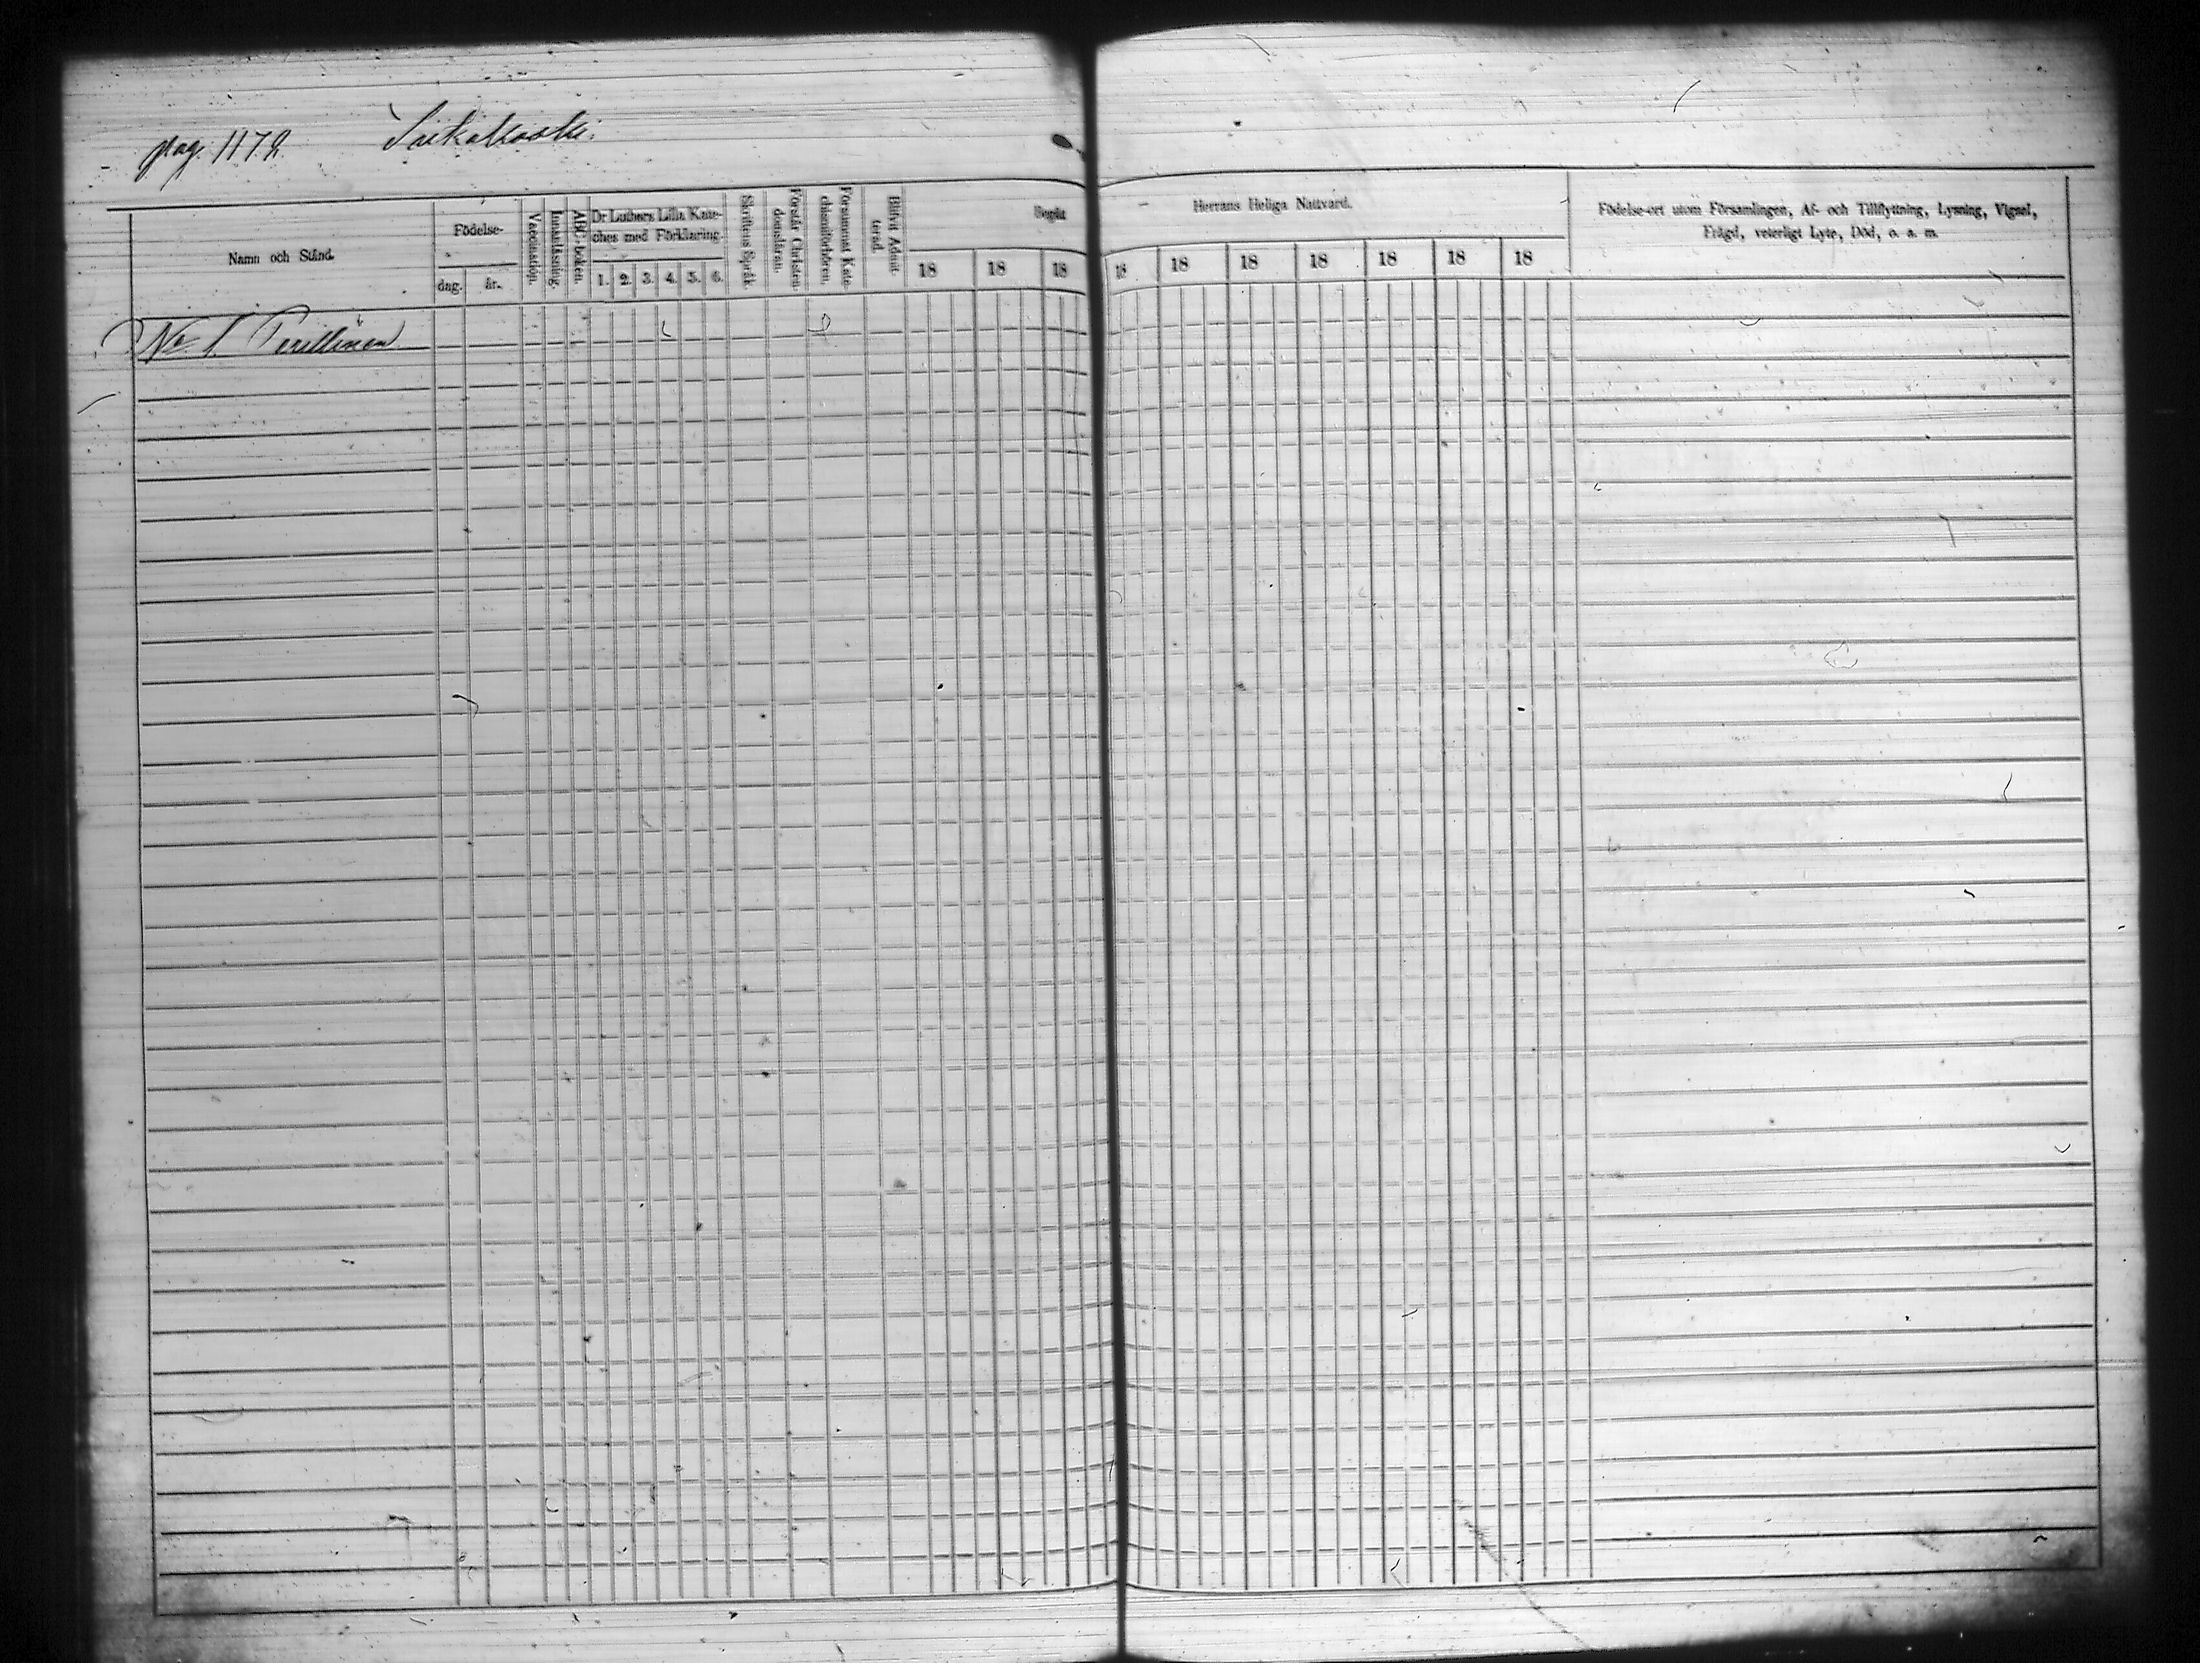 pag. 1172.
Namn och Stånd.
Födelse-
dag.
år.
Vaccination.
Innanläsning.
ABC-boken.
Dr Luthers Lilla Kate-
ches med Förklaring.
1. 2. 3. 4. 5. 6.
Skriftens Språk.
Förstår Christen-
domsläran.
Försummat Kate-
chismiförhören.
Blifvit Admit-
terad.
Begått
18 18 18
Herrans Heliga Nattvard.
18 18 18 18 18 18 18
Födelse-ort utom Församlingen, Af- och Tillflyttning, Lysning, Vigsel,
Frägd, veterligt Lyte, Död, o. s. m.
No 1.